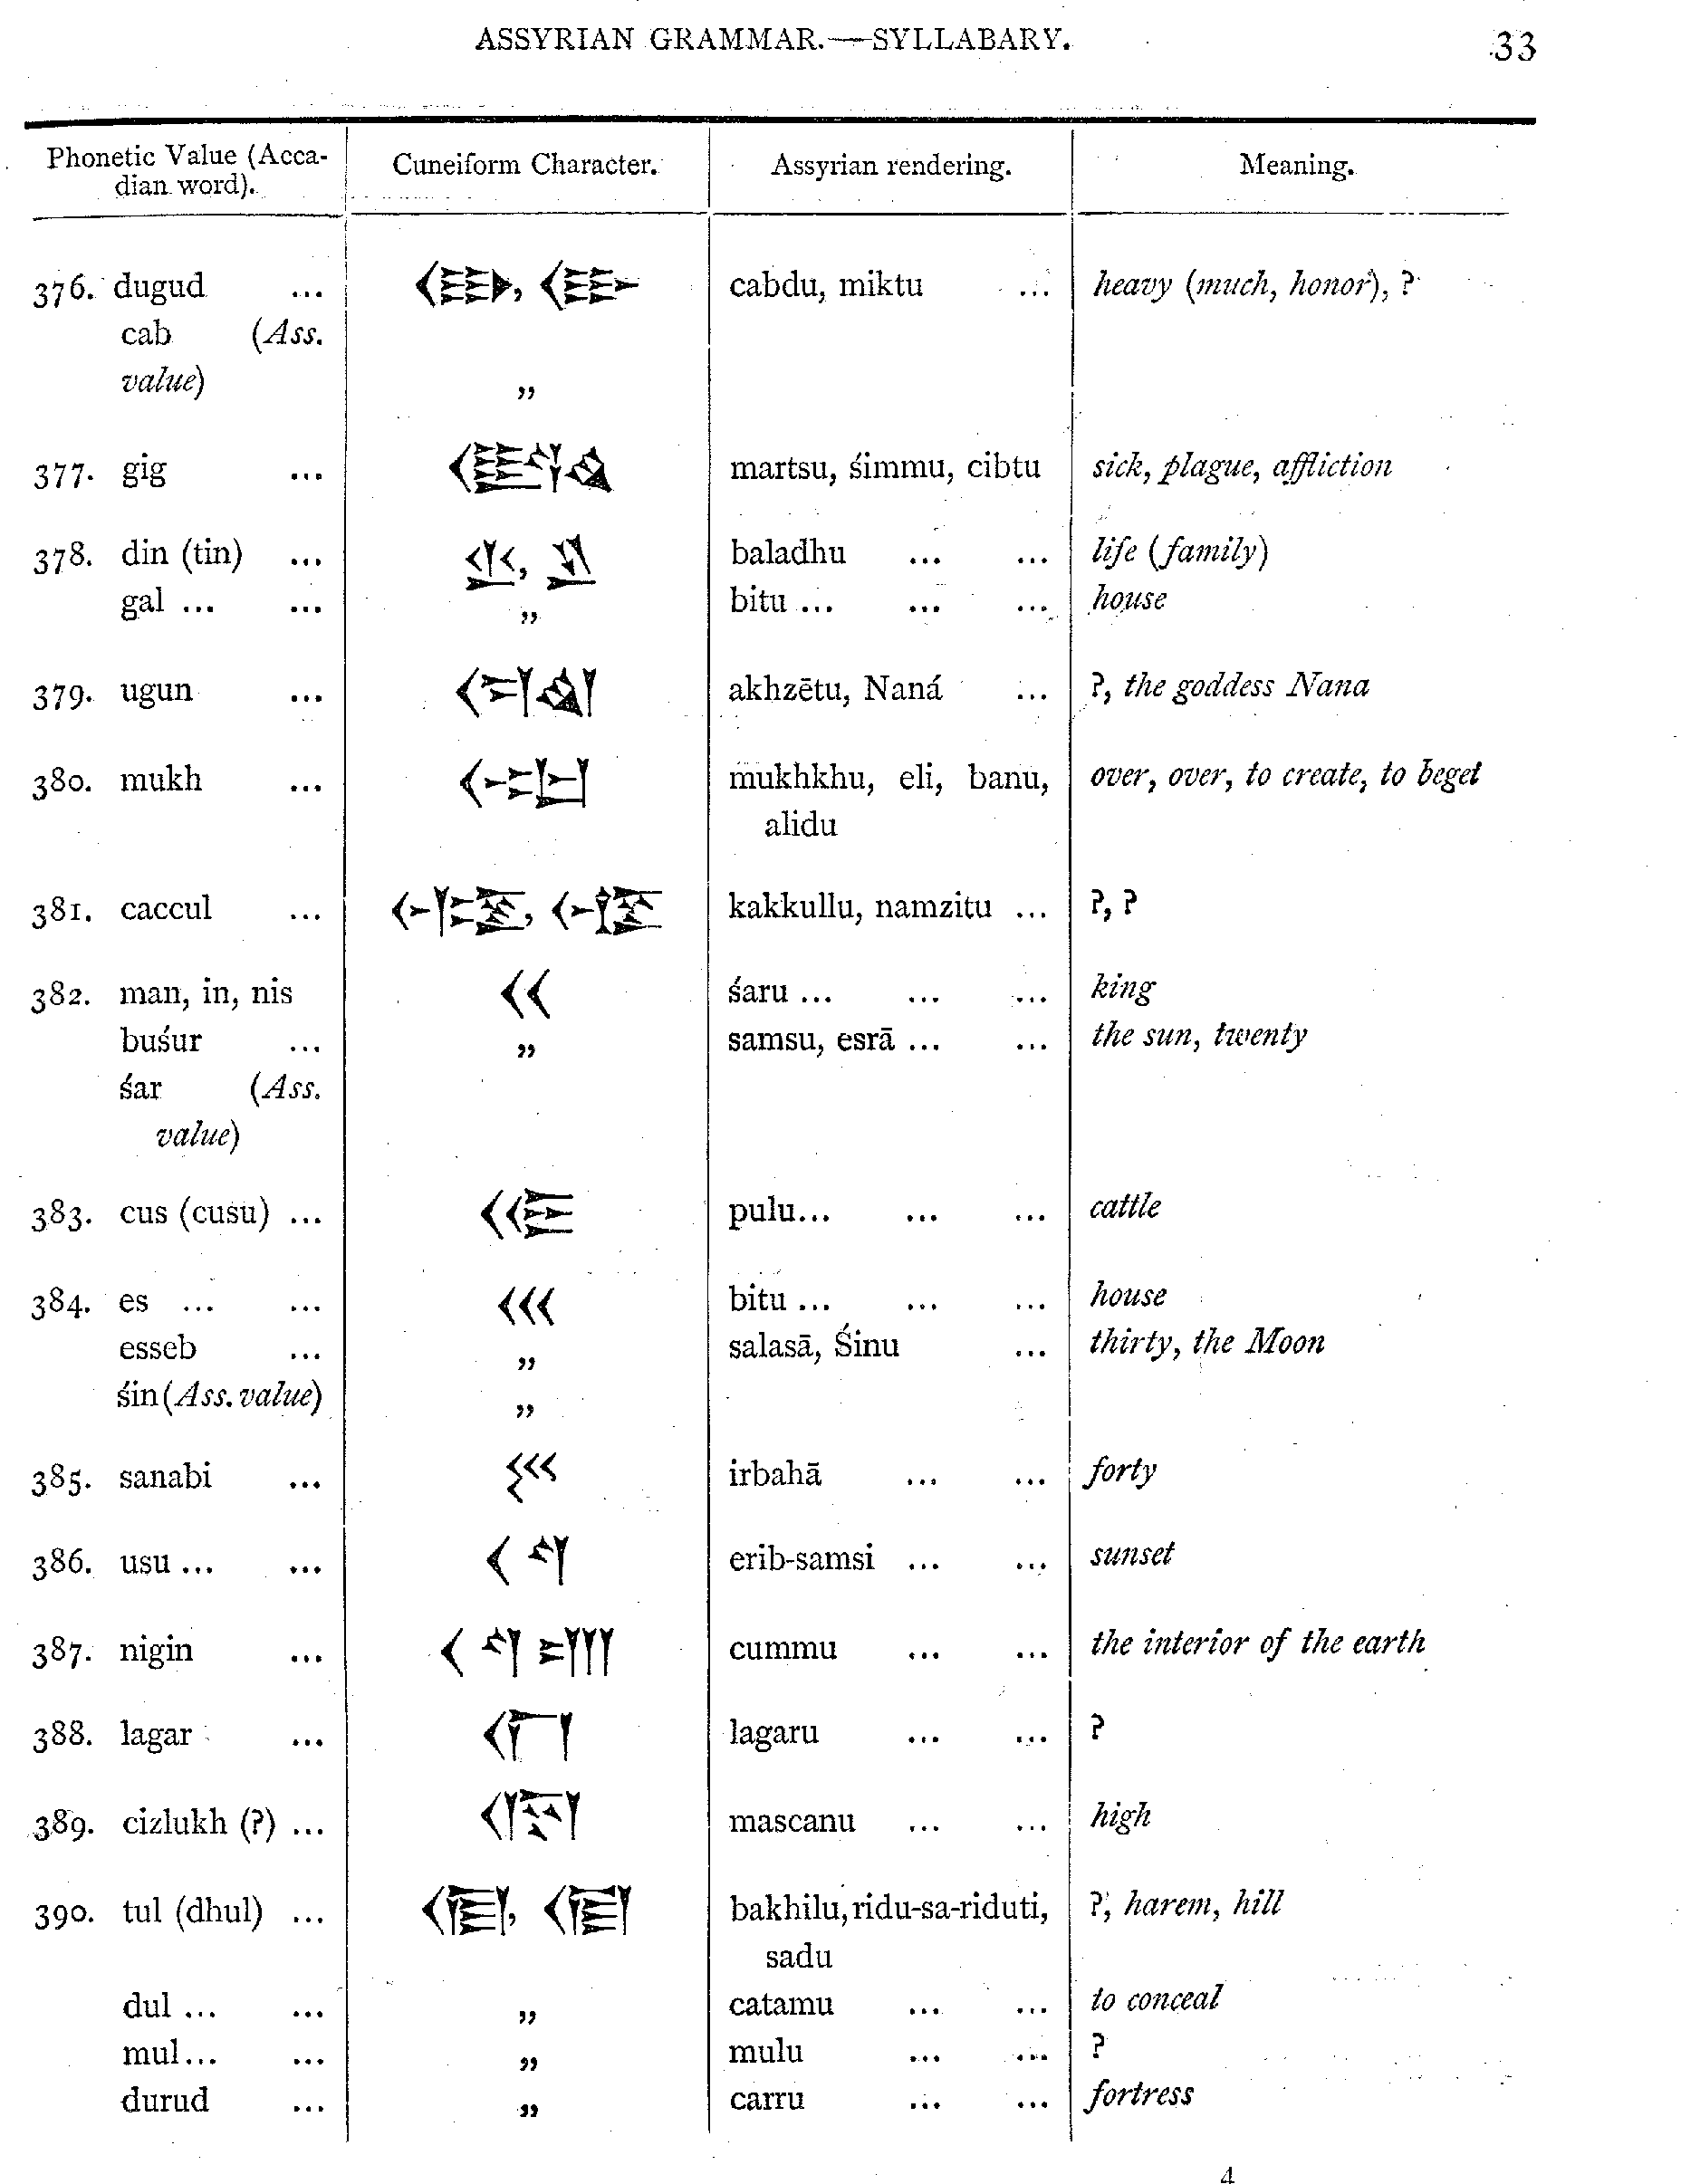 ASSYRIAN GRAMMAR.—SYLLABARY. 33
Phonetic Value (Acca-
dian word). Cuneiform Character. Assyrian rendering. Meaning.
376. dugud ... , cabdu, miktu ... heavy (much, honor), ?
cab (Ass.
value) „
377. gig ... martsu, śimmu, cibtu sick, plague, affliction
378. din (tin) ... , baladhu ... ... life (family)
gal ... ... „ bitu ... ... ... house
379. ugun ... akhzētu, Naná ... ?, the goddess Nana
380. mukh ... mukhkhu, eli, banu, over, over, to create, to beget
alidu
381. caccul ... , kakkullu, namzitu ... ?, ?
382. man, in, nis 𒌋𒌋 śaru ... ... ... king
buśur ... „ samsu, esrā ... ... the sun, twenty
śar (Ass.
value)
383. cus (cusu) ... pulu... ... ... cattle
384. es ... ... 𒌍 bitu ... ... ... house
esseb ... „ salasā, Śinu ... thirty, the Moon
śin (Ass. value) „
385. sanabi ... irbahā ... ... forty
386. usu ... ... erib-samsi ... ... sunset
387. nigin ... cummu ... ... the interior of the earth
388. lagar ... lagaru ... ... ?
389. cizlukh (?) ... mascanu ... ... high
390. tul (dhul) ... , bakhilu, ridu-sa-riduti, ?, harem, hill
sadu
dul ... ... „ catamu ... ... to conceal
mul... ... „ mulu ... ... ?
durud ... „ carru ... ... fortress
4